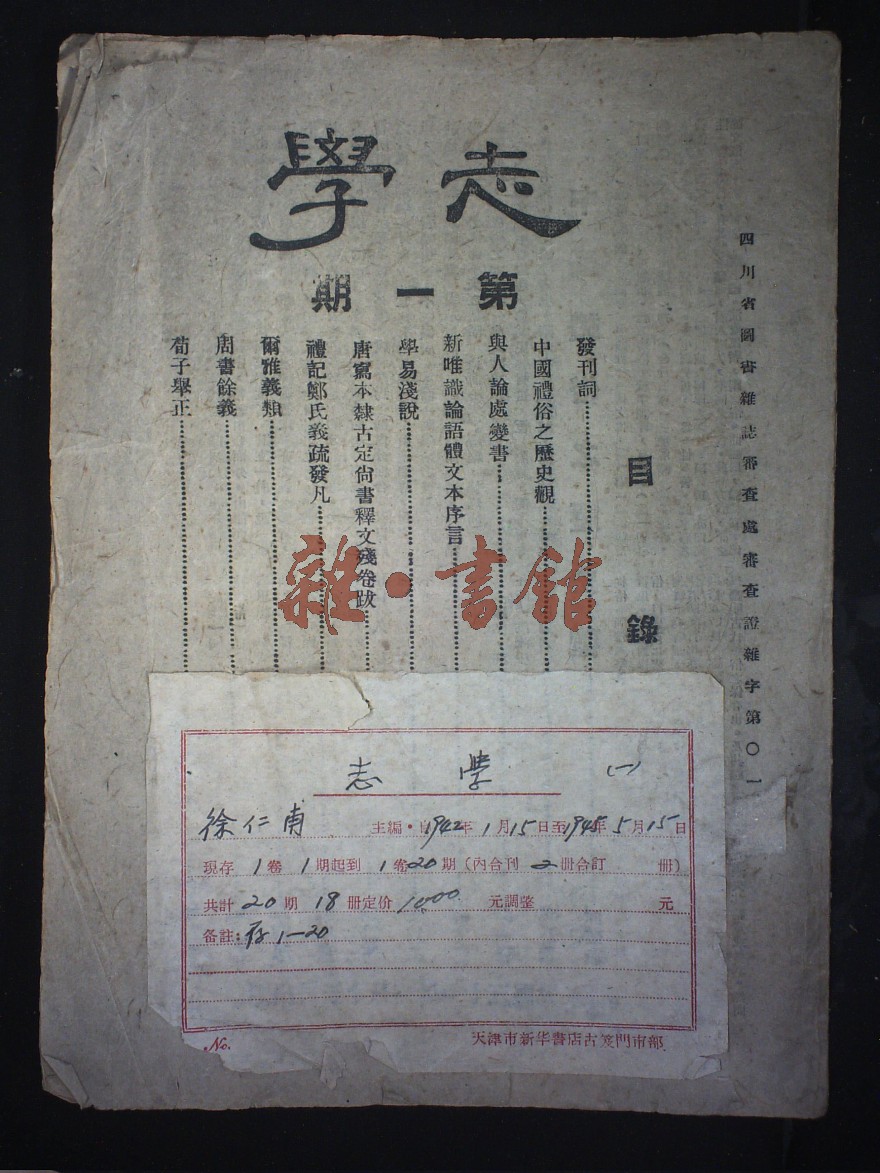 志學
第一期
四川省圖書雜誌審查處審查證雜字第〇一
目錄
發刊詞
中國禮俗之歷史觀
與人論處變書
新唯識論語體文本序言
學易淺說
唐寫本隸古定尙書釋文殘卷跋
禮記鄭氏義疏發凡
爾雅義類
周書餘義
荀子舉正
雜·書館
志學 (一)
徐仁甫 主編·自1942年1月15日至1945年5月15日
現存1卷1期起到1卷20期(內合刊2冊合訂 冊)
共計20期18冊定价1000元調整 元
备註:存1—20
No.
天津市新华書店古笈門市部